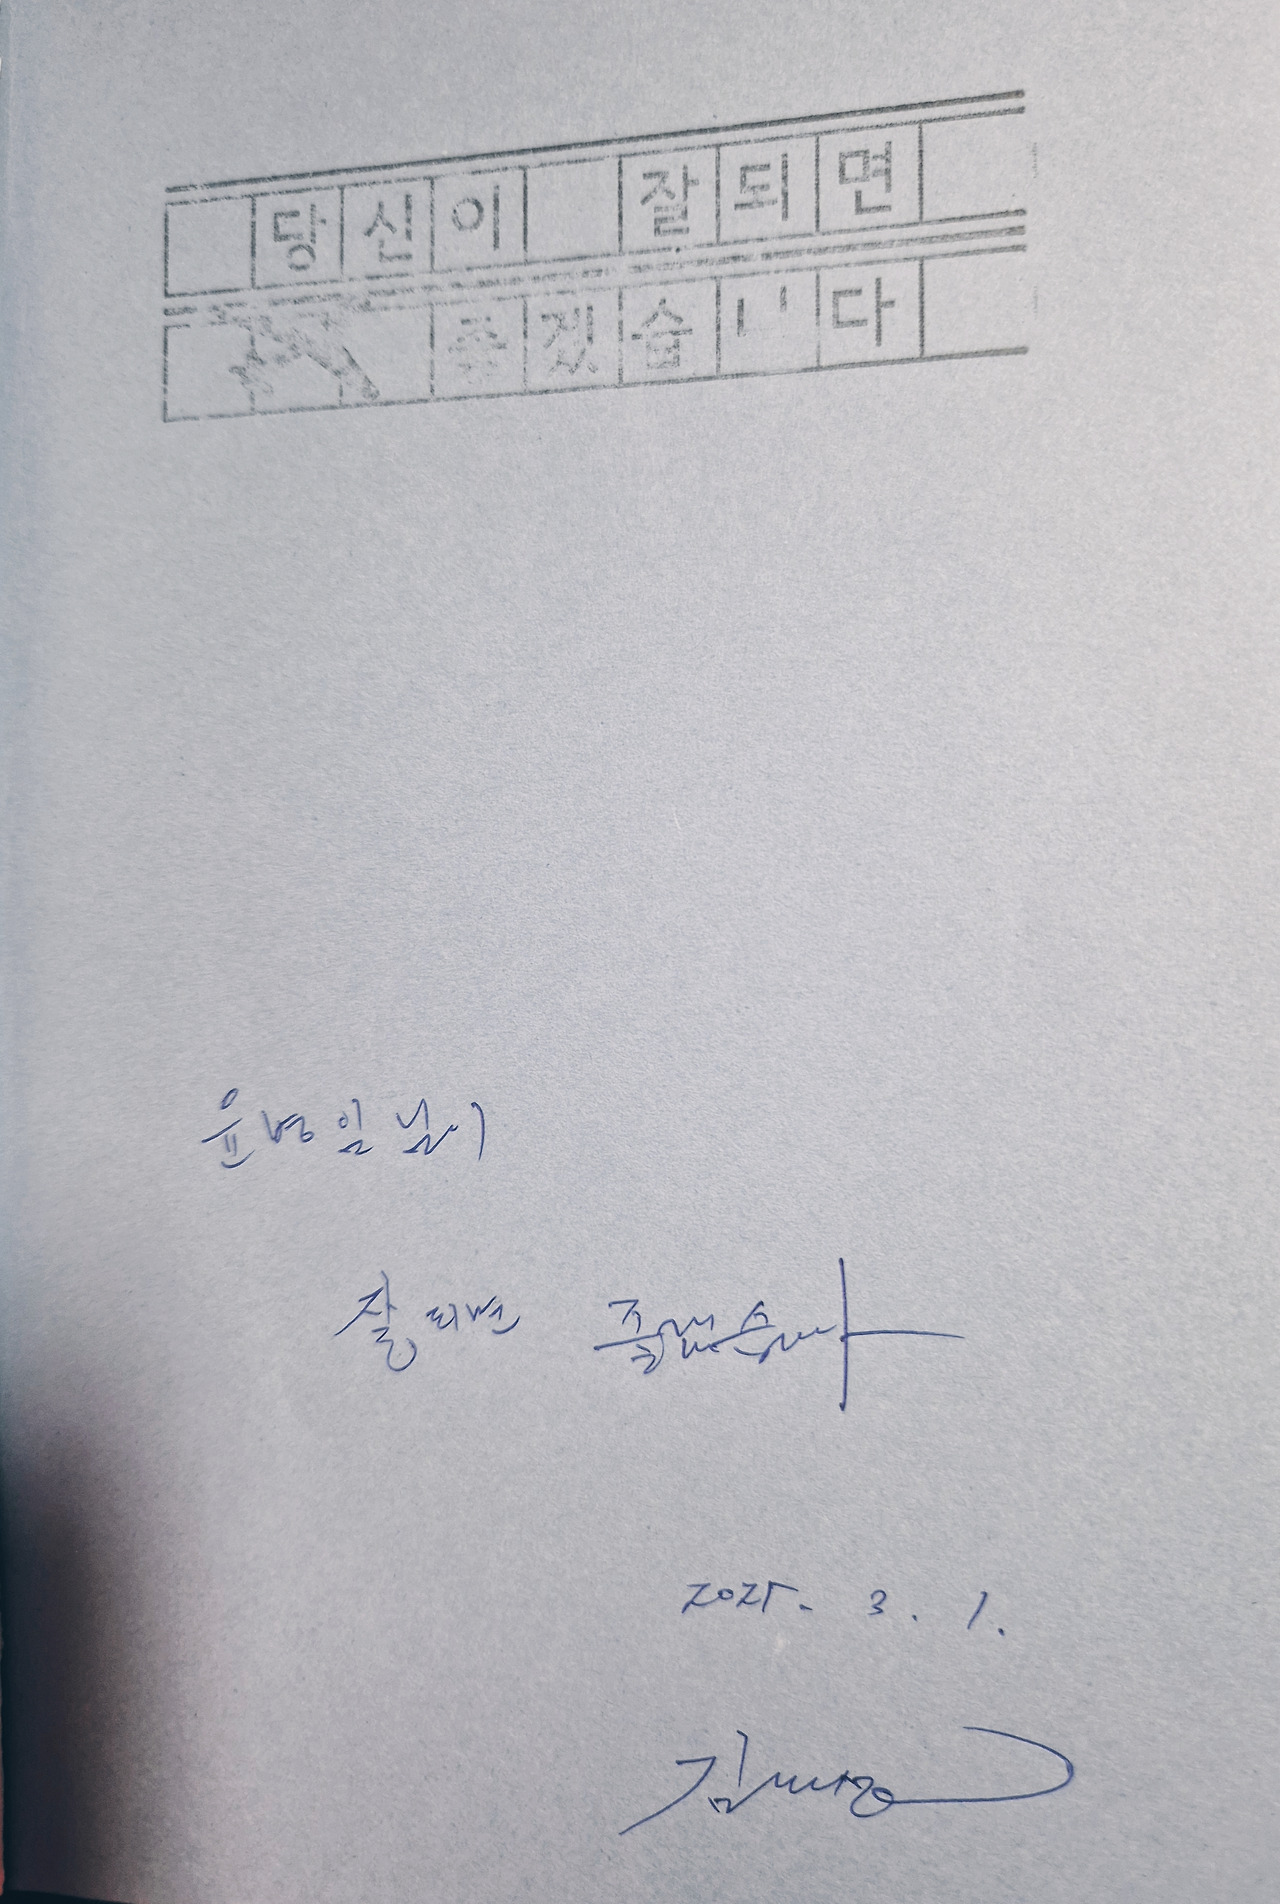 당신이 잘되면
좋겠습니다
윤병임 님이
잘 되면 좋겠습니다
2025. 3. 1.
김민섭